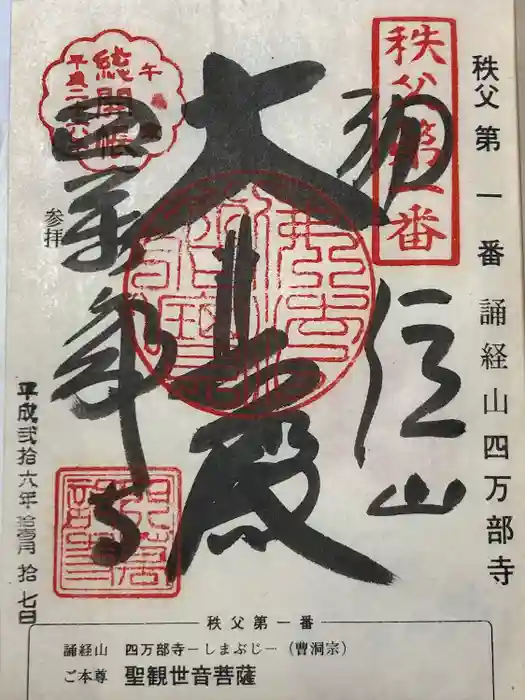 秩父第一番 誦経山四万部寺
秩父第一番
大悲殿
午
總開帳
平成二十六年
参拝
平成弐拾六年拾壱月拾七日
秩父第一番
誦経山 四万部寺－しまぶじ－（曹洞宗）
ご本尊 聖観世音菩薩